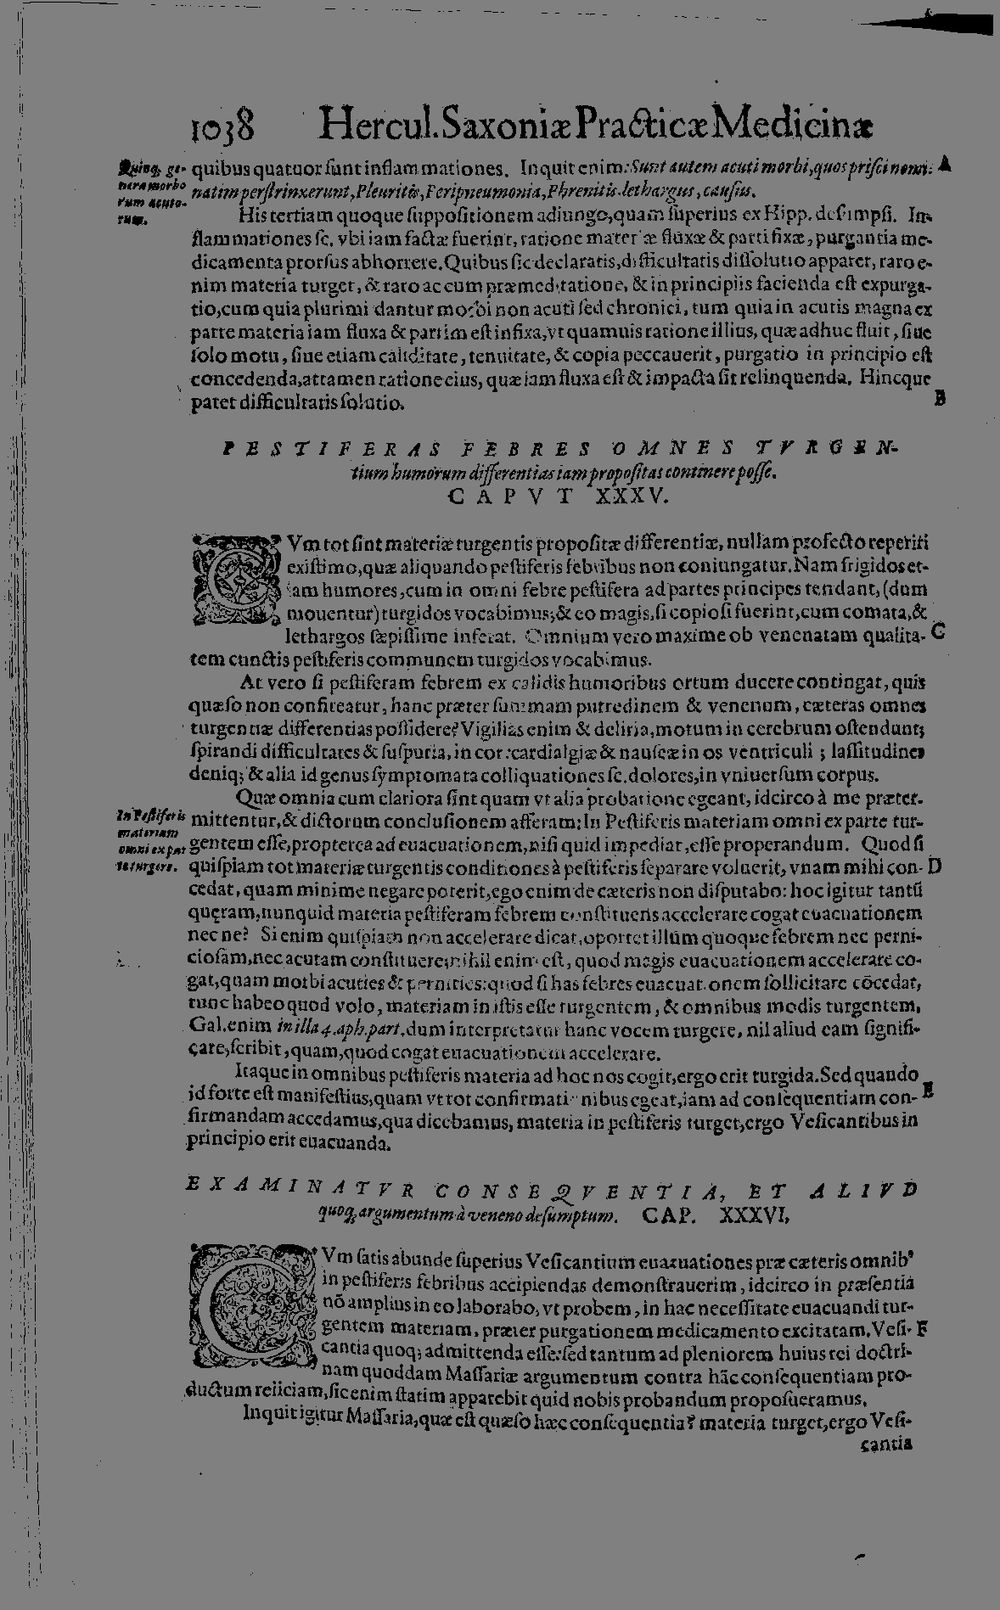 1038 Hercul. Saxoniæ Practicæ Medicinæ
Quinq; ge-
nera morbo
rum acuto-
rum.
quibus quatuor sunt inflammationes. Inquit enim: Sunt autem acuti morbi, quos prisci nomi- A
natim perstrinxerunt, Pleuritis, Peripneumonia, Phrenitis, lethargus, causus.
His tertiam quoque suppositionem adiungo, quam superius ex Hipp. desumpsi. In-
flammationes sc. vbi iam factæ fuerint, ratione materiæ fluxæ & parti fixæ, purgantia me-
dicamenta prorsus abhorrere. Quibus sic declaratis, difficultatis dissolutio apparet, raro e-
nim materia turget, & raro ac cum præmeditatione, & in principiis facienda est expurga-
tio, cum quia plurimi dantur morbi non acuti sed chronici, tum quia in acutis magna ex
parte materia iam fluxa & partim est infixa, vt quamuis ratione illius, quæ adhuc fluit, siue
solo motu, siue etiam caliditate, tenuitate, & copia peccauerit, purgatio in principio est
concedenda, attamen ratione eius, quæ iam fluxa est & impacta sit relinquenda. Hincque
patet difficultatis solutio. B
PESTIFERAS FEBRES OMNES TVRGEN-
tium humorum differentias iam propositas continere posse.
CAPVT XXXV.
CVm tot sint materiæ turgentis propositæ differentiæ, nullam profecto reperiri
existimo, quæ aliquando pestiferis febribus non coniungatur. Nam frigidos et-
iam humores, cum in omni febre pestifera ad partes principes tendant, (dum
mouentur) turgidos vocabimus; & eo magis, si copiosi fuerint, cum comata, &
lethargos sæpissime inferat. Omnium vero maxime ob venenatam qualita- C
tem cunctis pestiferis communem turgidos vocabimus.
At vero si pestiferam febrem ex calidis humoribus ortum ducere contingat, quis
quæso non confiteatur, hanc præter summam putredinem & venenum, cæteras omnes
turgentiæ differentias possidere? Vigiliæ enim & deliria, motum in cerebrum ostendunt;
spirandi difficultates & suspuria, in cor: cardialgiæ & nauseæ in os ventriculi; lassitudines
deniq; & alia id genus symptomata colliquationes sc. dolores, in vniuersum corpus.
In Pestiferis
materiam
omni ex par
te turgere.
Quæ omnia cum clariora sint quam vt alia probatione egeant, idcirco à me præter-
mittentur, & dictorum conclusionem afferam: In Pestiferis materiam omni ex parte tur-
gentem esse, propterea ad euacuationem, nisi quid impediat, esse properandum. Quod si
quispiam tot materiæ turgentis conditiones à pestiferis separare voluerit, vnam mihi con- D
cedat, quam minime negare poterit, ego enim de cæteris non disputabo: hoc igitur tantũ
quęram, nunquid materia pestiferam febrem constitueris accelerare cogat euacuationem
nec ne? Si enim quispiam non accelerare dicat, oportet illum quoque febrem nec perni-
ciosam, nec acutam constituere, nihil enim est, quod magis euacuationem accelerare co-
gat, quam morbi acuties & pernities: quod si has febres euacuationem sollicitare cōcedat,
tunc habeo quod volo, materiam in istis esse turgentem, & omnibus modis turgentem,
Gal. enim in illa 4. aph. part. dum interpretatur hanc vocem turgere, nil aliud eam signifi-
care, scribit, quam, quod cogat euacuationem accelerare.
Itaque in omnibus pestiferis materia ad hoc nos cogit, ergo erit turgida. Sed quando
id forte est manifestius, quam vt tot confirmationibus egeat, iam ad consequentiam con- E
firmandam accedamus, qua dicebamus, materia in pestiferis turget, ergo Vesicantibus in
principio erit euacuanda.
EXAMINATVR CONSEQVENTIA, ET ALIVD
quoq; argumentum à veneno desumptum. CAP. XXXVI,
CVm satis abunde superius Vesicantium euacuationes præ cæteris omnib'
in pestiferis febribus accipiendas demonstrauerim, idcirco in præsentia
nō amplius in eo laborabo, vt probem, in hac necessitate euacuandi tur-
gentem materiam, præter purgationem medicamento excitatam, Vesi- F
cantia quoq; admittenda esse: sed tantum ad pleniorem huius rei doctri-
nam quoddam Massariæ argumentum contra hāc consequentiam pro-
ductum reiiciam, sic enim statim apparebit quid nobis probandum proposueramus.
Inquit igitur Massaria, quæ est quæso hæc consequentia? materia turget, ergo Vesi-
cantia